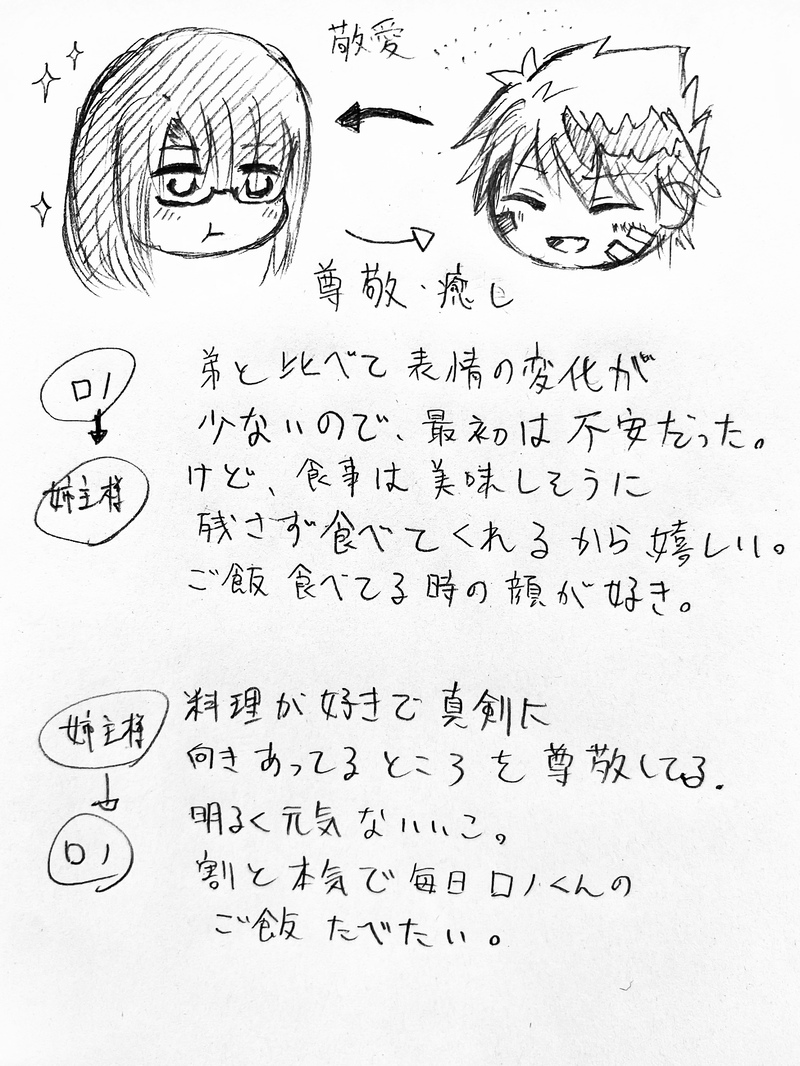 敬愛
尊敬・癒し
ロノ
姉主様
弟と比べて表情の変化が
少ないので、最初は不安だった。
けど、食事は美味しそうに
残さず食べてくれるから嬉しい。
ご飯食べてる時の顔が好き。
姉主様
ロノ
料理が好きで真剣に
向きあってるところを尊敬してる.
明るく元気ないいこ。
割と本気で毎日ロノくんの
ご飯たべたい。